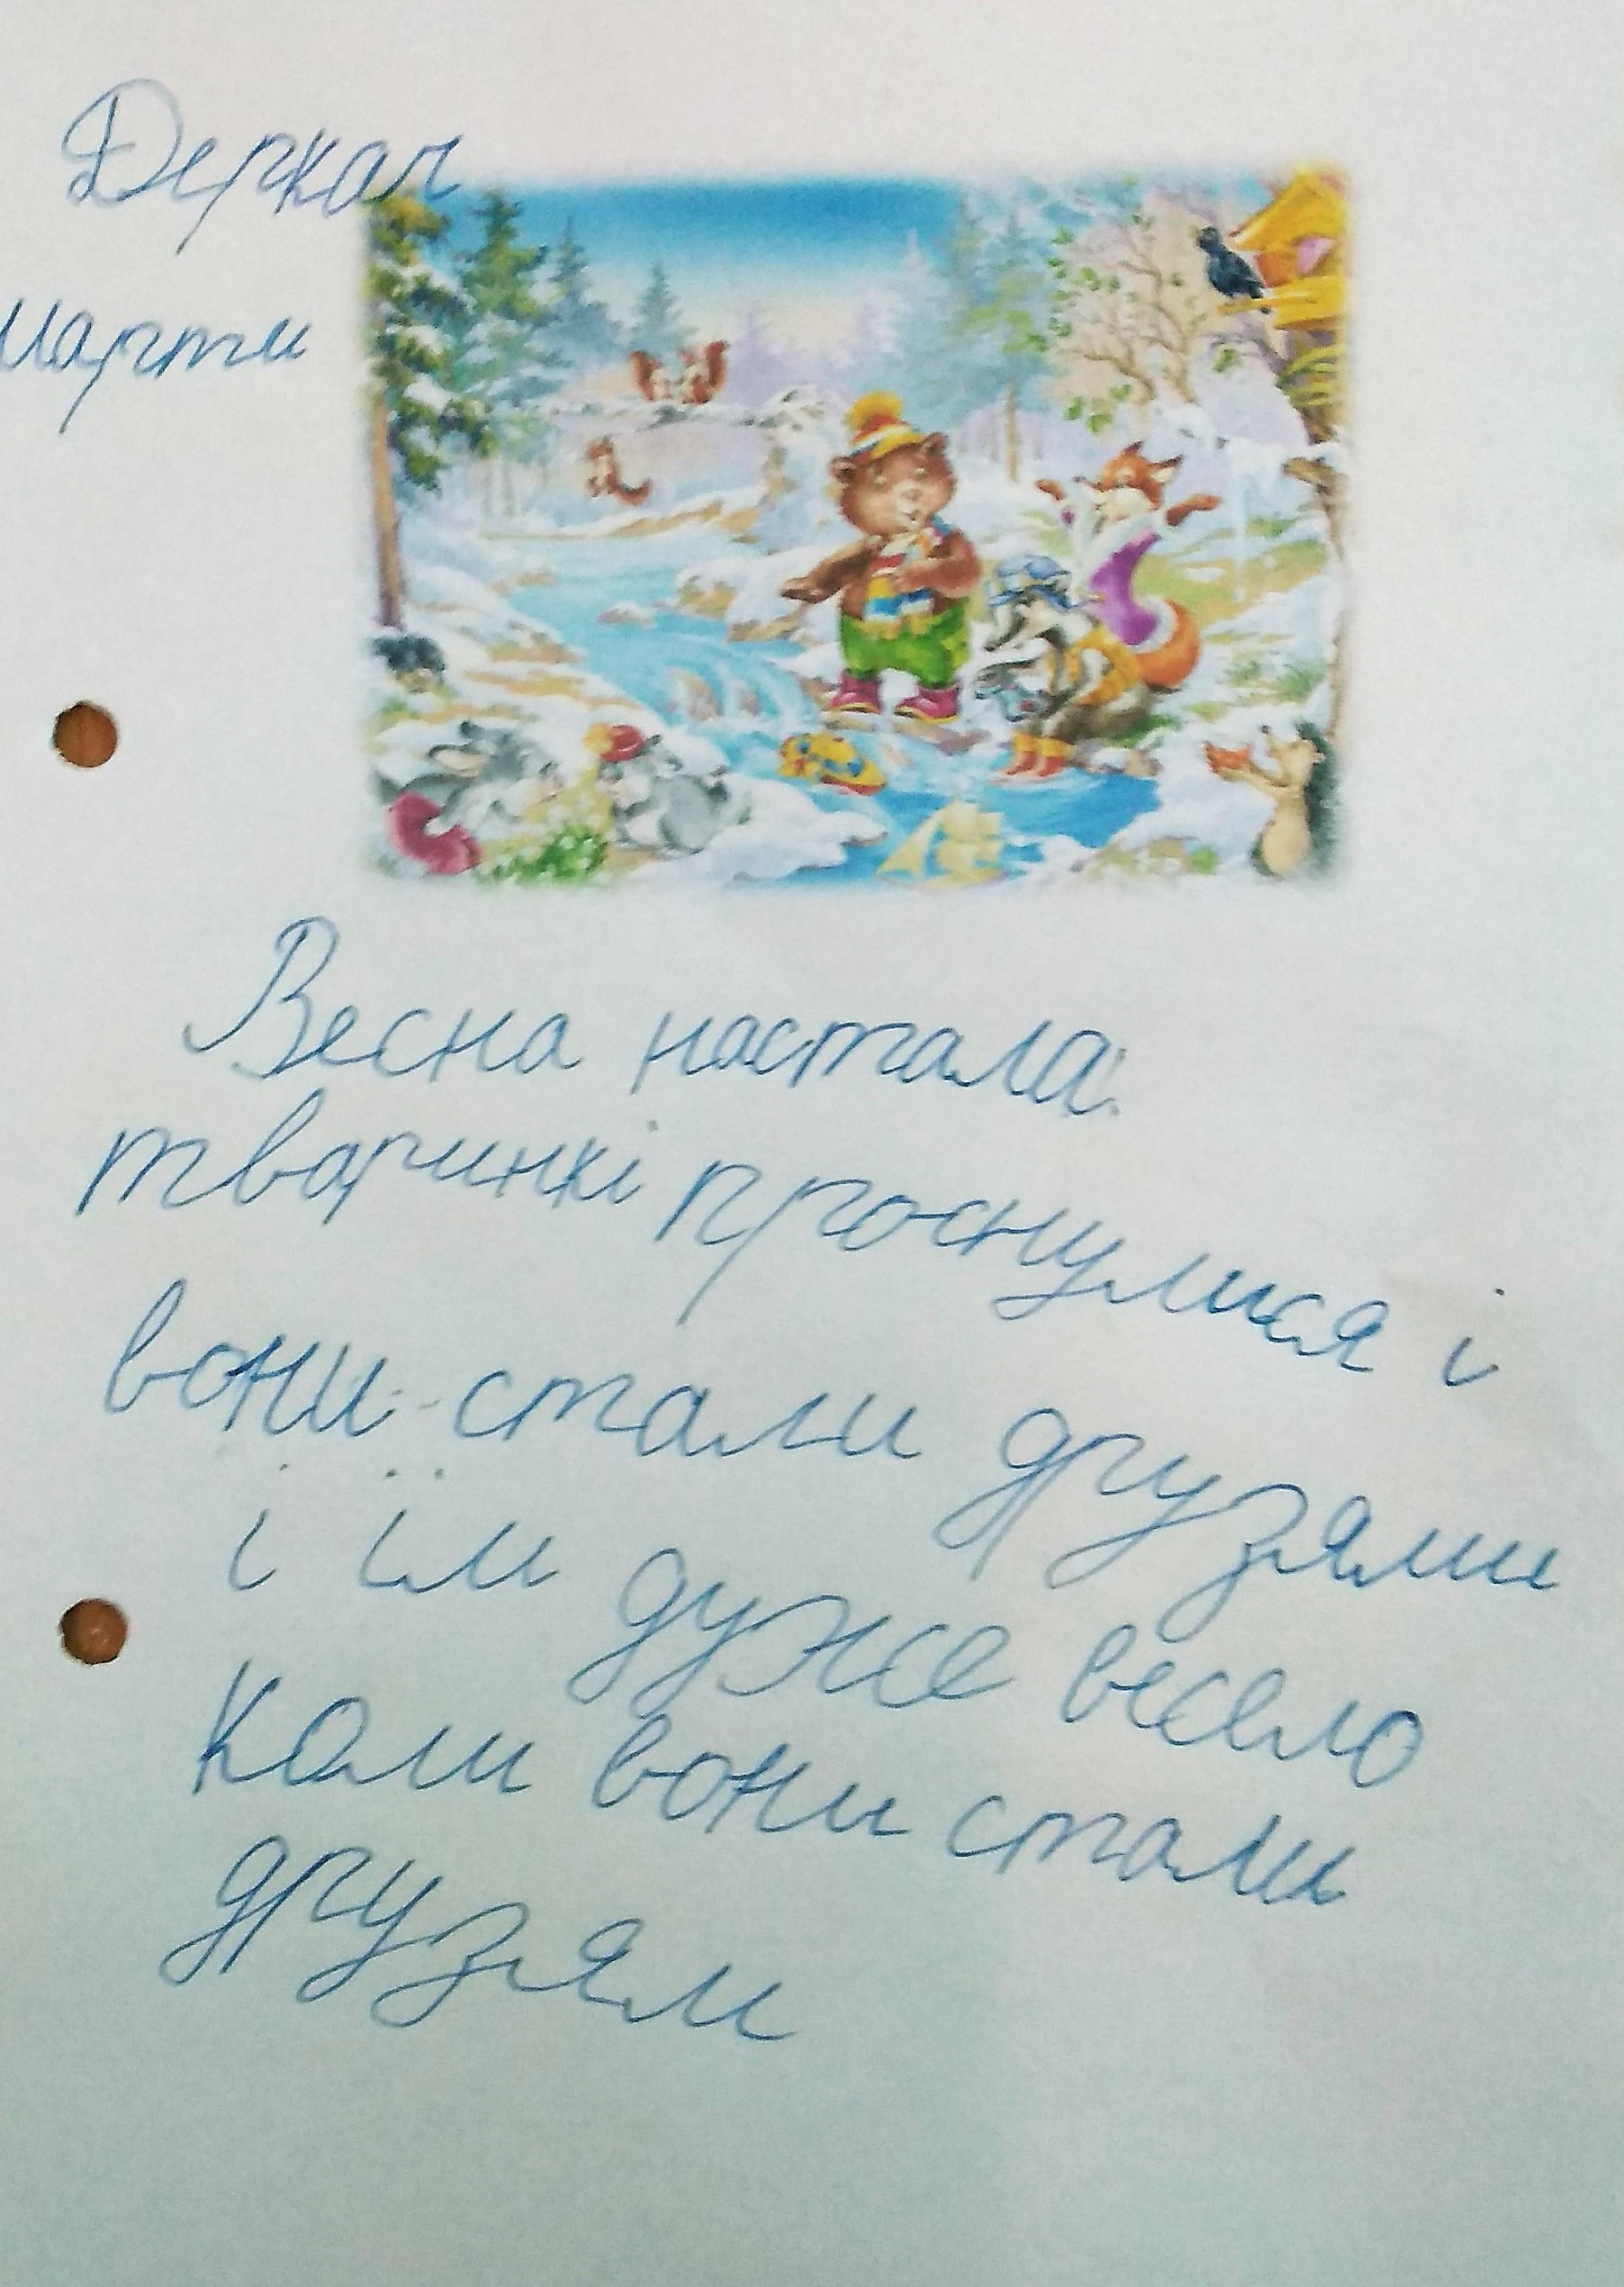 Деркач
Марти
Весна настала.
тваринкі проснулися і
вони стали друзями
і їм дуже весело
Коли вони стали
друзям